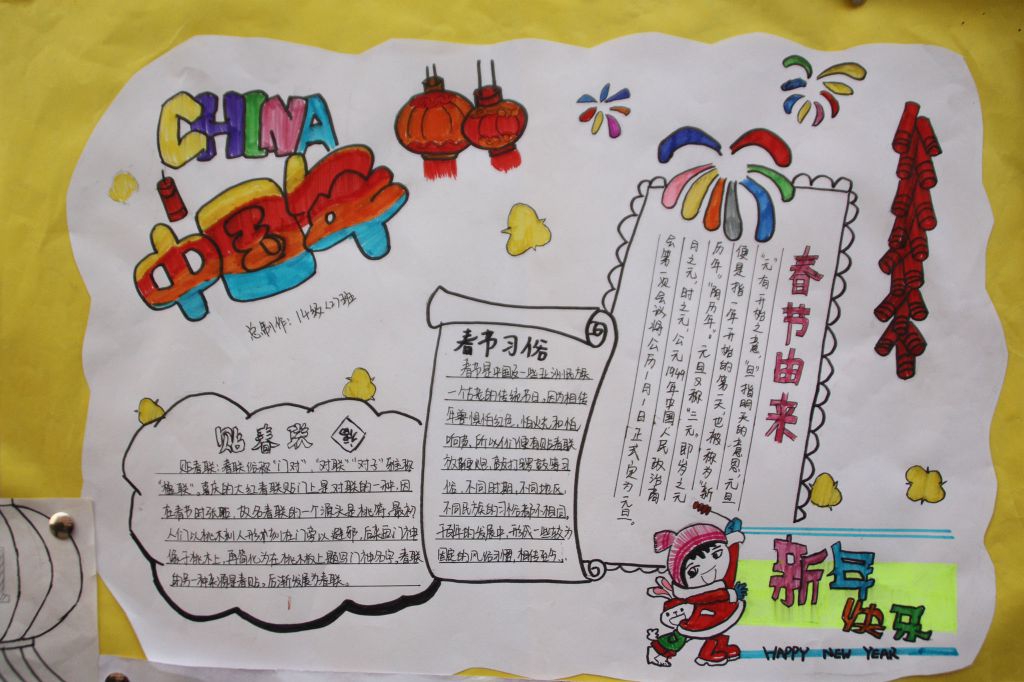 CHINA
中国年
总制作：14级(2)班
贴春联
福
贴春联：春联俗称"门对"，"对联""对子"雅称
"楹联"，喜庆的大红春联贴门上是对联的一种，因
在春节时张贴，故名春联的一个源头是桃符，最初
人们以桃木刻人形挂在门旁以避邪，后来画门神
像于桃木上，再简化为在桃木板上题写门神名字，春联
的另一种来源是春贴，后渐发展为春联。
春节习俗
春节是中国及一些亚洲民族
一个古老的传统节日，因为相传
年兽惧怕红色，怕火光和怕
响声，所以人们便有贴春联
放鞭炮，敲打锣鼓等习
俗，不同时期，不同地区，
不同民族的习俗都不相同，
千百年的发展中，形成一些较为
固定的风俗习惯，相传至今。
春节由来
"元"有开始之意，"旦"指明天的意思元旦
便是指一年开始的第一天，也被称为"新
历年。""阳历年。"元旦又称"三元，即岁之元
月之元，时之元，公元1949年中国人民政治商
会第一次会议将公历1月1日正式定为元旦。
新年
快乐
HAPPY NEW YEAR